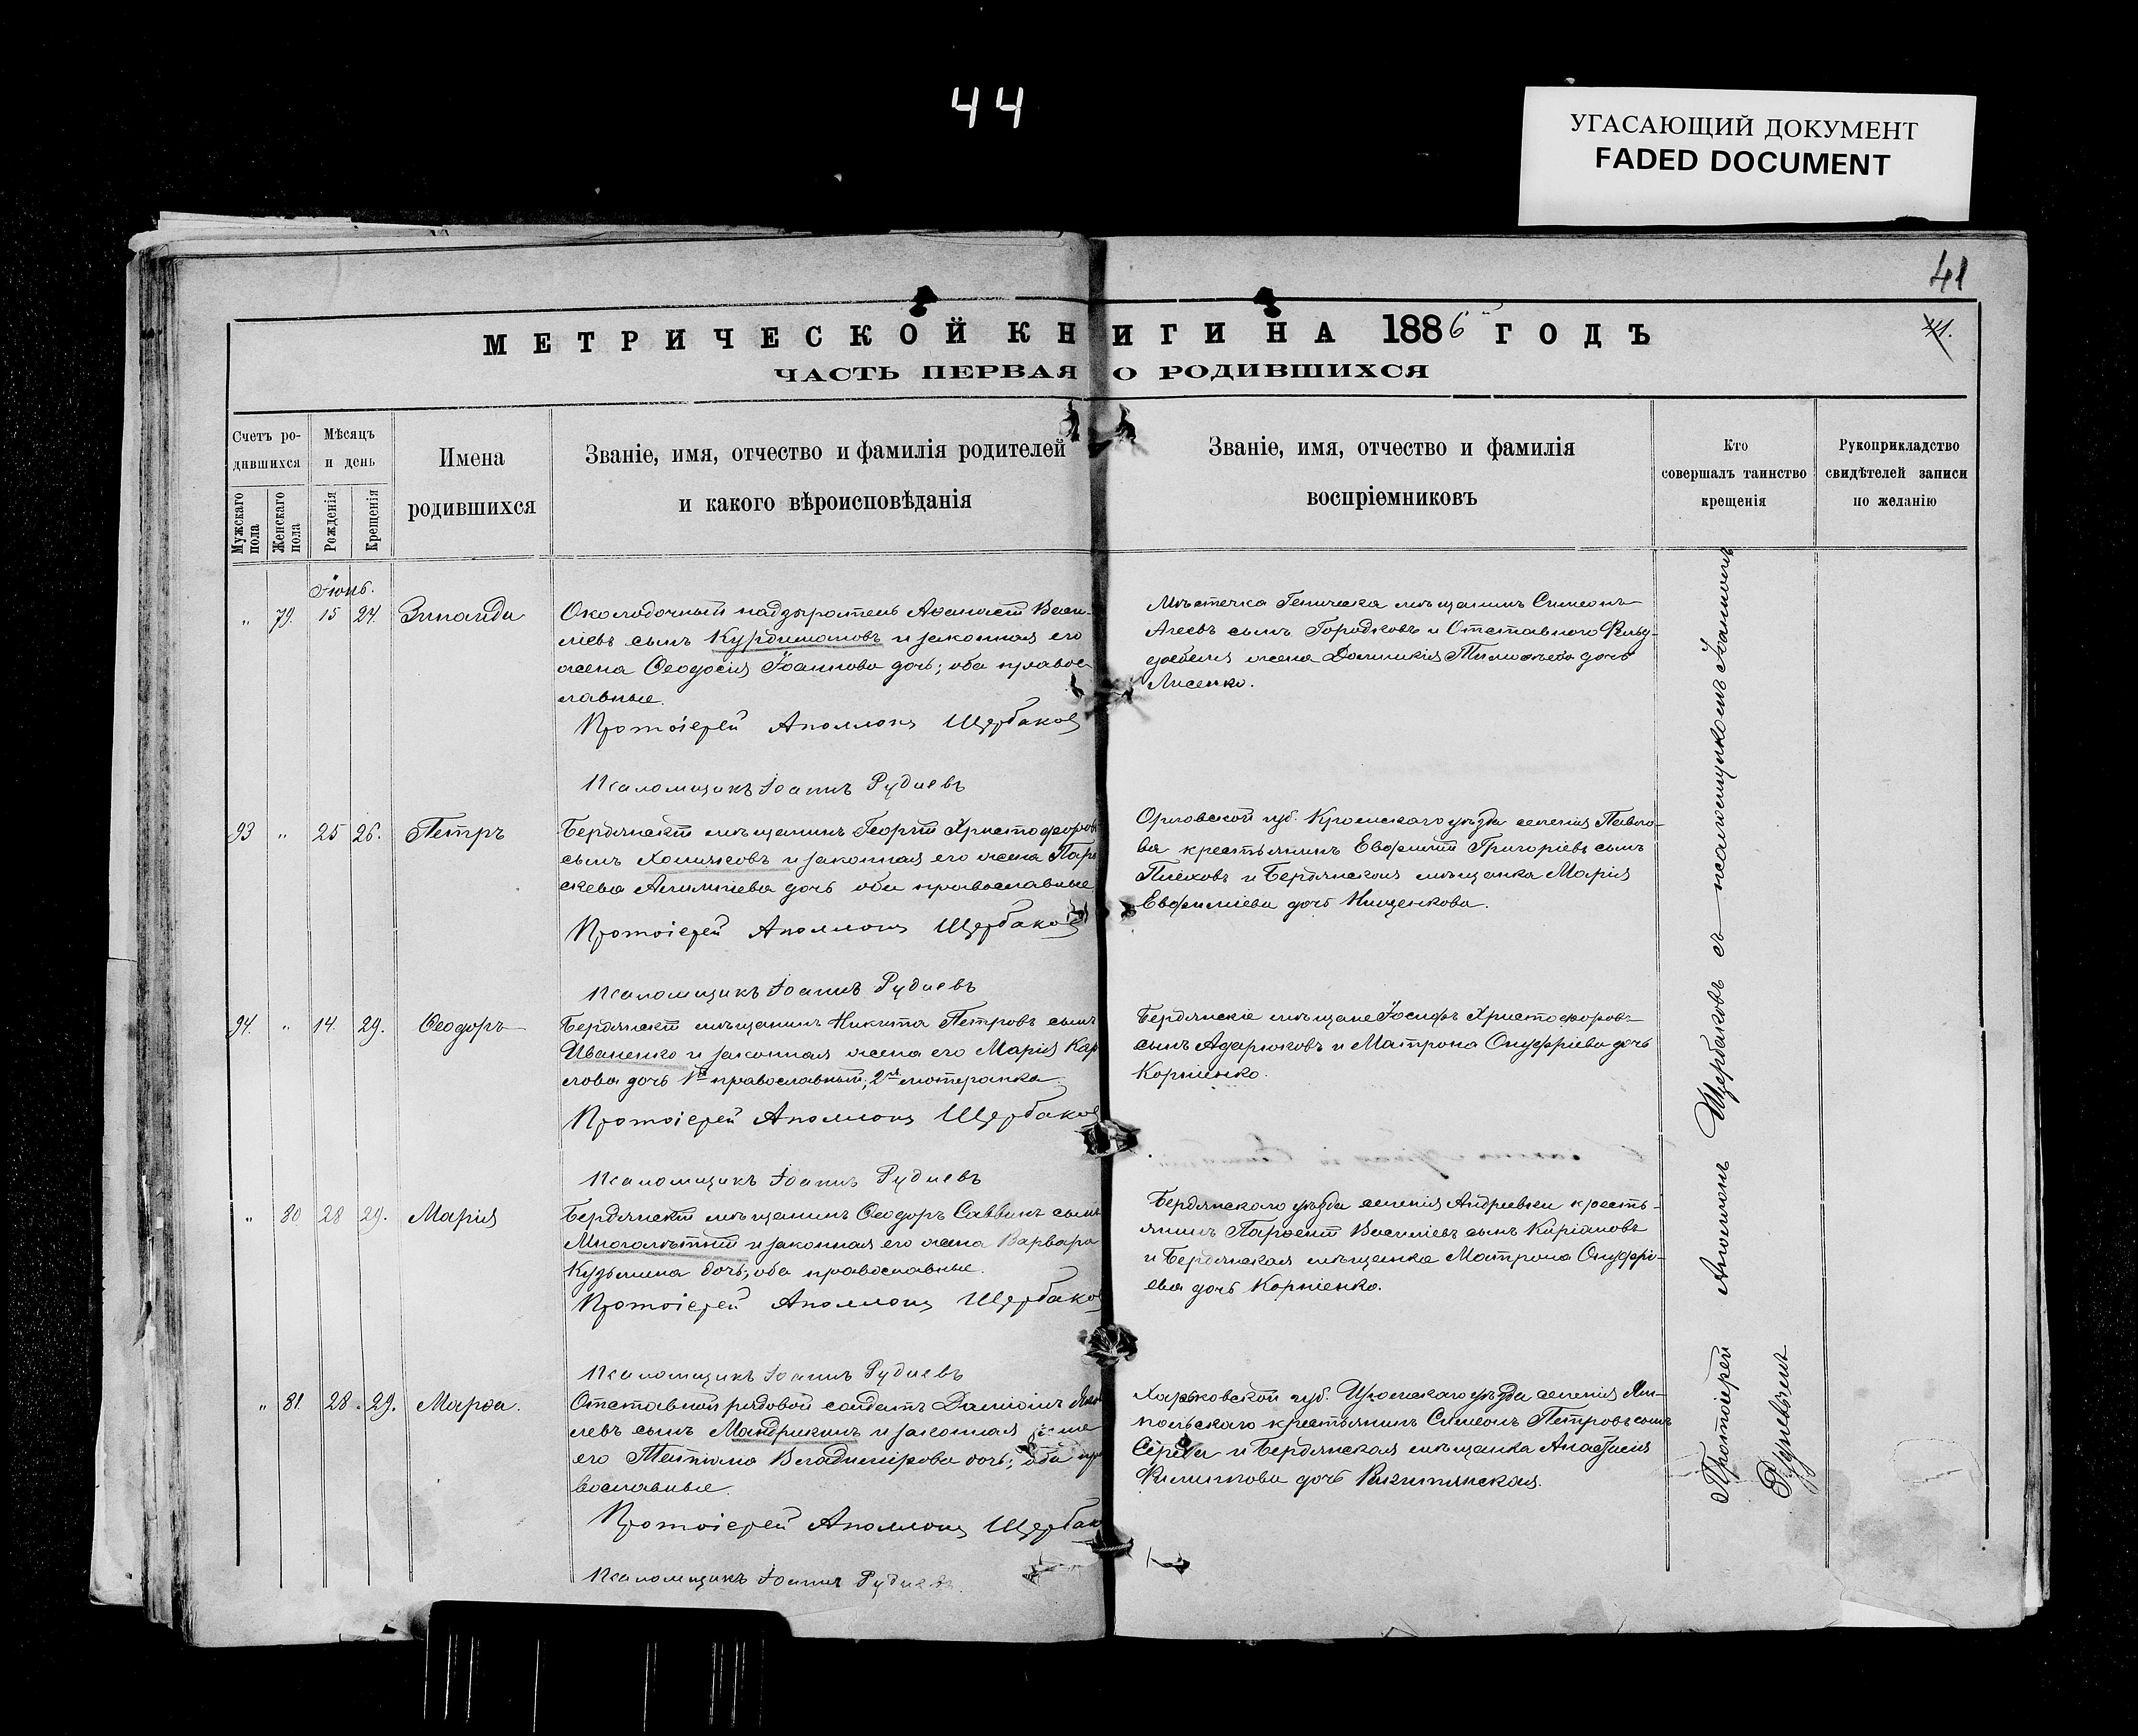 44
УГАСАЮЩИЙ ДОКУМЕНТ
FADED DOCUMENT
41
41.
МЕТРИЧЕСКОЙ КНИГИ НА 1886 ГОДЪ
ЧАСТЬ ПЕРВАЯ О РОДИВШИХСЯ
Счетъ ро-
дившихся
Мужскаго пола
Женскаго пола
Мѣсяцъ
и день
Рожденія
Крещенія
Имена
родившихся
Званіе, имя, отчество и фамилія родителей
и какого вѣроисповѣданія
Званіе, имя, отчество и фамилія
воспріемниковъ
Кто
совершалъ таинство
крещенія
Рукоприкладство
свидѣтелей записи
по желанію
Іюнь.
„ 79. 15 24. Зинаида
Околодочный надзиратель Аѳанасій Васи-
ліевъ сынъ Курдимановъ и законная его
жена Ѳеодосія Іоаннова дочь; оба правос-
лавные.
Протоіерей Аполлонъ Щербаковъ
Псаломщикъ Іоаннъ Рудневъ
Мѣстечка Геническа мѣщанинъ Симеонъ
Агеевъ сынъ Городковъ и Отставного Фельд-
фебеля жена Домникія Тимоѳеева дочь
Лисенко.
93 „ 25 26. Петръ
Бердянскій мѣщанинъ Георгій Христофоровъ
сынъ Хомяковъ и законная его жена Пара
скева дочь оба православные.
Протоіерей Аполлонъ Щербаковъ
Псаломщикъ Іоаннъ Рудневъ
Орловской губ. Кромскаго уѣзда селенія
крестьянинъ Евфимій Григоріевъ сынъ
и Бердянская мѣщанка Марія
Евфиміева дочь Нищенкова.
94. „ 14. 29. Ѳеодоръ
Бердянскій мѣщанинъ Никита Петровъ сынъ
Иваненко и законная жена его Марія Кар
лова дочь 1й православный, 2я лютеранка.
Протоіерей Аполлонъ Щербаковъ
Псаломщикъ Іоаннъ Рудневъ
Бердянскіе мѣщане Іосифъ Христофоровъ
сынъ Адарюковъ и Матрона Онуфріева дочь
Корніенко.
„ 80 28 29. Марія
Бердянскій мѣщанинъ Ѳеодоръ Саввинъ сынъ
Многолѣтній и законная его жена Варвара
Кузьмина дочь; оба православные.
Протоіерей Аполлонъ Щербаковъ
Псаломщикъ Іоаннъ Рудневъ
Бердянскаго уѣзда селенія Андреевки кресть-
янинъ Парѳеній Василіевъ сынъ Киріановъ
и Бердянская мѣщанка Матрона Онуфрі-
ева дочь Корніенко.
„ 81. 28. 29. Марѳа.
Отставной рядовой солдатъ Даміанъ
левъ сынъ Мандрикинъ и законная жена
его Татіана Владимірова дочь; оба пра
вославные.
Протоіерей Аполлонъ Щербак
Псаломщикъ Іоаннъ Рудневъ.
Харьковской губ. уѣзда селенія
польскаго крестьянинъ Симеонъ Петровъ сынъ
и Бердянская мѣщанка Анастасія
Филиппова дочь
Протоіерей Аполлонъ Щербаковъ съ псаломщикомъ Іоанномъ
Рудневымъ